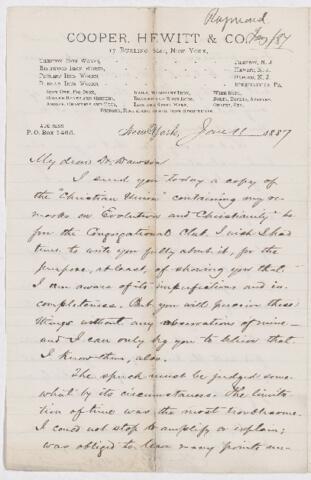 Raymond
COOPER, HEWITT & CO.
17 BURLING SLIP, NEW YORK,
TRENTON IRON WORKS,
RINGWOOD IRON WORKS,
PEQUEST IRON WORKS
DURHAM IRON WORKS
TRENTON, N. J.
HEWITT, N. J.
OXFORD, N. J.
RIEGELSVILLE PA.
ADDRESS
P.O. BOX 1468.
New York, June 11 1887
My dear Dr. Dawson
I send you today a copy of
the "Christian Union" containing my re-
marks on Evolution and Christianity be
fore the Congregational Club. I wish I had
time to write you fully about it, for the
purpose, at least, of showing you that
I am aware of its imperfections and in-
completeness. But you will perceive these
things without any observations of mine -
and I can only beg you to believe that
I know them, also.
The speech must be judged some-
what by its circumstances. The limita-
tion of time was the most troublesome.
I could not stop to amplify or explain;
was obliged to leave many points un-